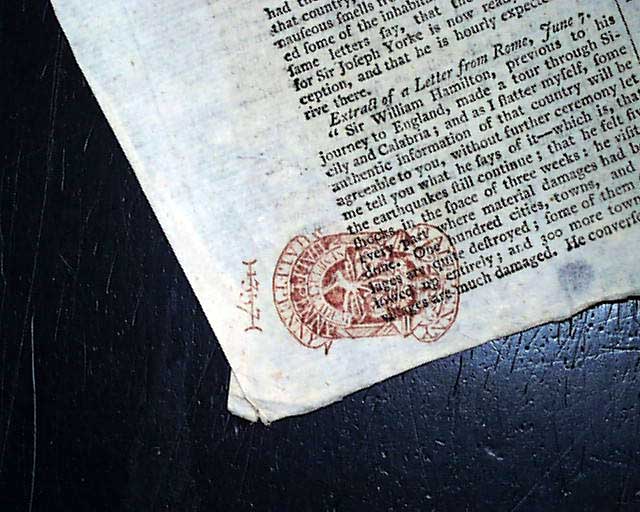 had th
that country,
nauseous smells fro
ed ſome of the inhabitan
ſame letters ſay, that the
for Sir Joſeph Yorke is now read
ception, and that he is hourly expecte
rive there.
Extract of a Letter from Rome, June 7.
" Sir William Hamilton, previous to his
journey to England, made a tour through Si-
cily and Calabria; and as I flatter myſelf, ſome
authentic information of that country will be
agreeable to you, without further ceremony le
me tell you what he ſays of it—which is, tha
the earthquakes ſtill continue; that he felt fiv
ſhocks in the ſpace of three weeks; he viſit
every pa where material damages had b
done. One hundred cities, towns, and
lages are quite deſtroyed; ſome of them
lowed up entirely; and 300 more town
villages are much damaged. He conver